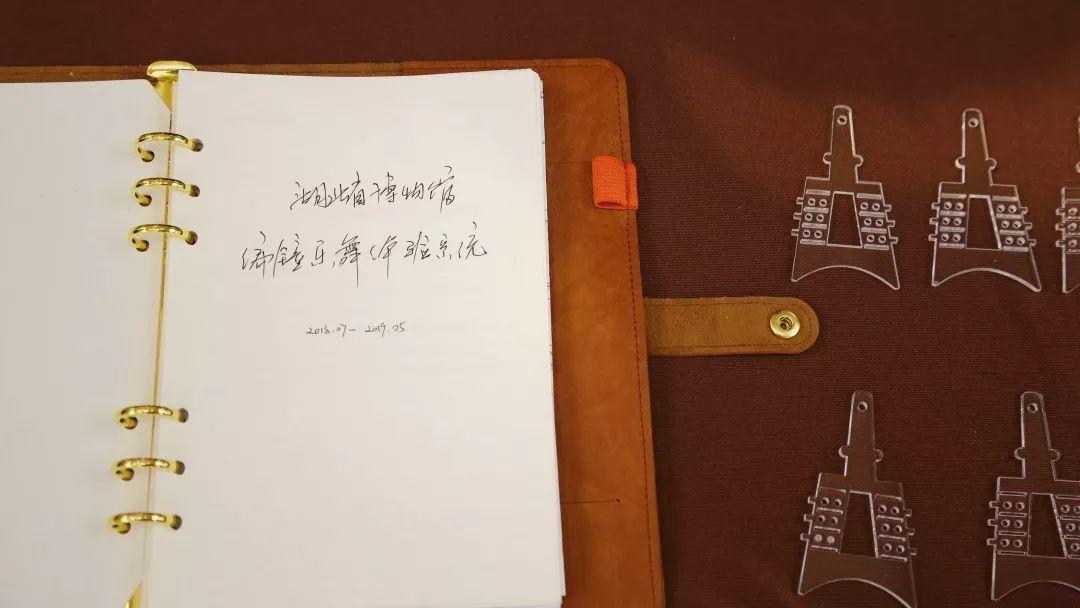 湖北省博物馆
编钟乐舞体验系统
2018.07-2019.05